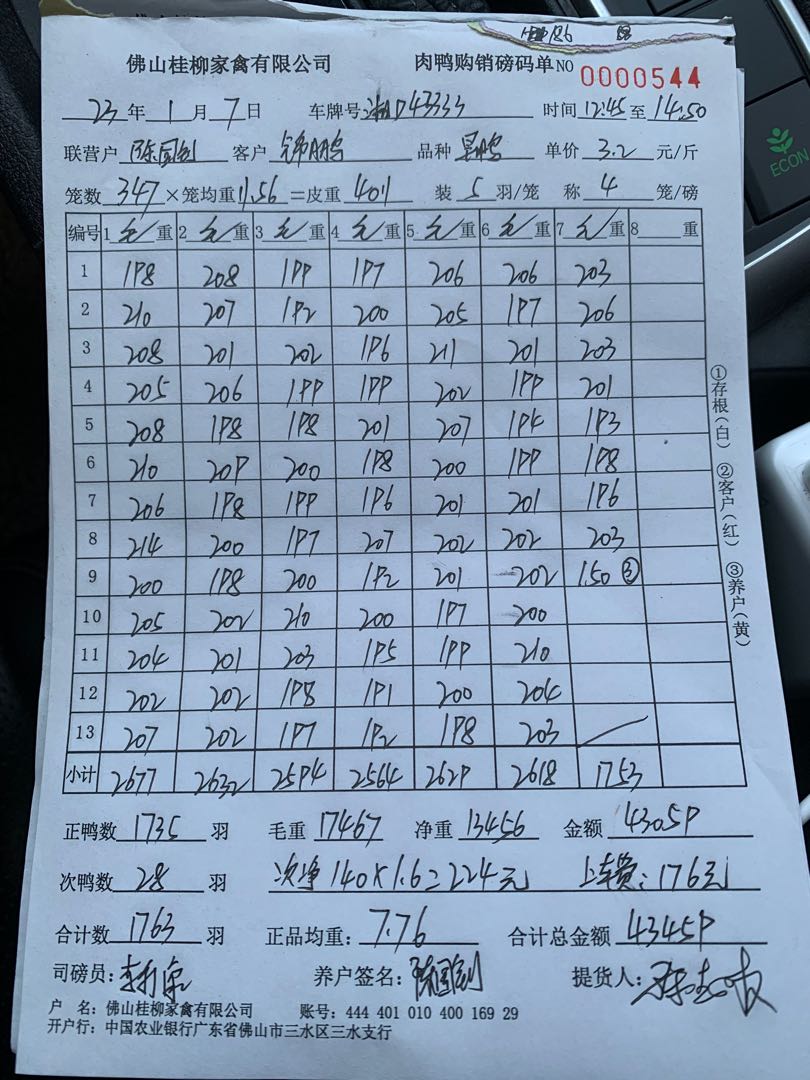 佛山桂柳家禽有限公司 肉鸭购销磅码单 NO 0000544
23 年 1 月 7 日 车牌号 湘D43333 时间 12:45 至 14:50
联营户 陈国剑 客户 锦鹏 品种 单价 3.2 元/斤
笼数 347 ×笼均重 11.56 =皮重 4011 装 5 羽/笼 称 4 笼/磅
编号 1 毛 重 2 毛 重 3 毛 重 4 毛 重 5 毛 重 6 毛 重 7 毛 重 8 重
1 198 208 199 197 206 206 203
2 210 207 192 200 205 197 206
3 208 201 202 196 211 201 203
4 205 206 199 199 202 199 201
5 208 198 198 201 207 194 193
6 210 209 200 198 200 199 198
7 206 198 199 196 201 201 196
8 214 200 197 207 202 202 203
9 200 198 200 192 201 202 150 ③
10 205 202 210 200 197 200
11 204 201 203 195 199 210
12 202 202 198 191 200 204
13 207 202 197 192 198 203
小计 2677 2632 2594 2564 2629 2618 1753
①存根(白) ②客户(红) ③养户(黄)
正鸭数 1735 羽 毛重 17467 净重 13456 金额 43059
次鸭数 28 羽 次净 140×1.6=224元 上车费:176元
合计数 1763 羽 正品均重: 7.76 合计总金额 43459
司磅员: 养户签名: 陈国剑 提货人:
户 名: 佛山桂柳家禽有限公司 账号: 444 401 010 400 169 29
开户行: 中国农业银行广东省佛山市三水区三水支行
ECON